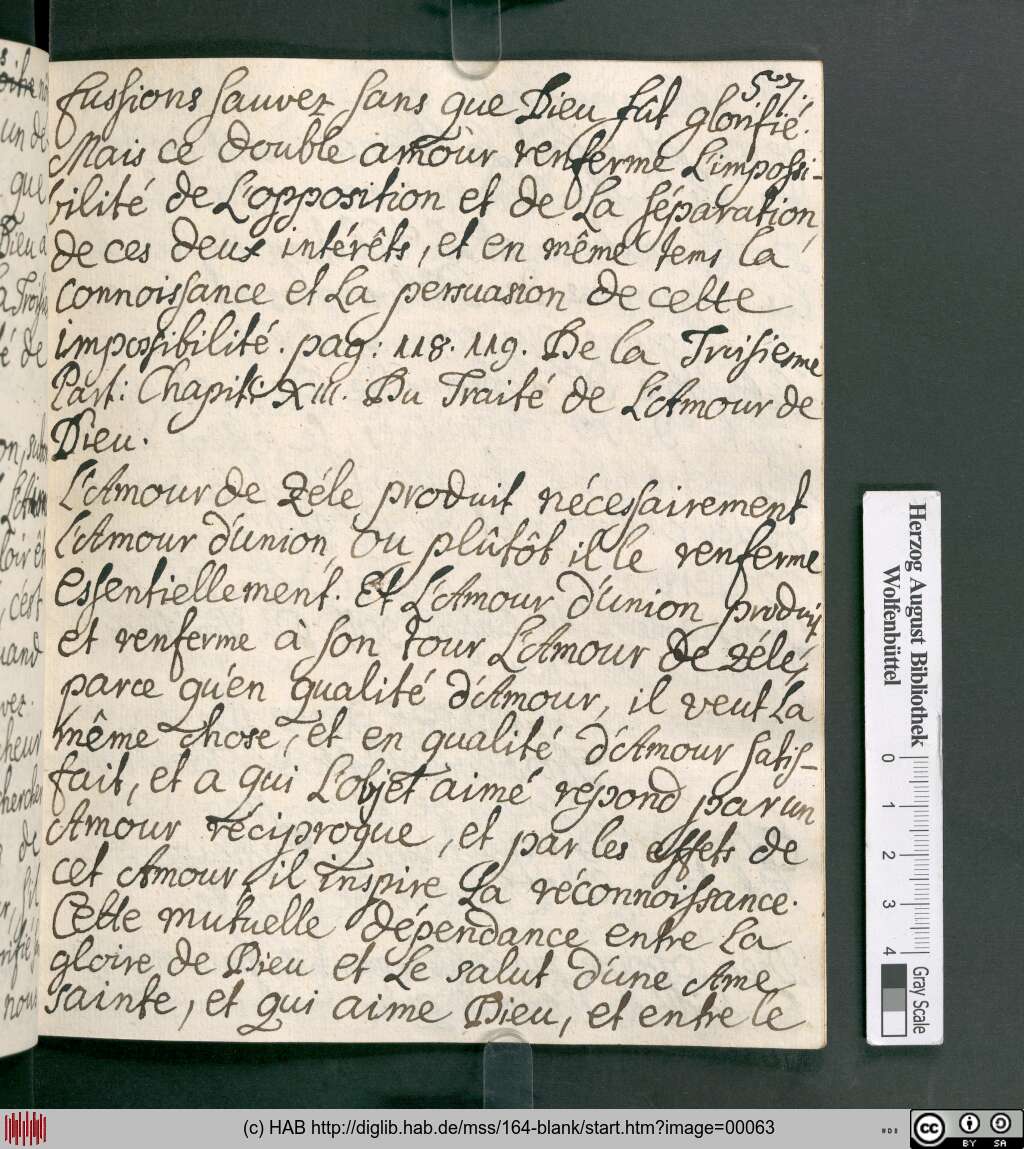 507.
fussions sauvez sans que Dieu fût glorifié.
Mais ce double amour renferme L'impossi-
bilité de L'opposition et de La séparation,
de ces deux intérêts, et en même tems la
connoissance et La persuasion de cette
impossibilité. pag: 118. 119. De la Troisieme
Part: Chapitr XIII. Du Traité de L'Amour de
Dieu.
L'Amour de Zéle produit nécessairement
L'Amour d'union, ou plûtôt il le renferme
essentiellement. Et L'Amour d'union produit
et renferme à son tour L'Amour de zélé,
parce qu'en qualité d'Amour, il veut La
même chose, et en qualité d'Amour satis-
fait, et a qui L'objet aimé répond par un
Amour réciproque, et par les effets de
cet Amour, il inspire La réconnoissance.
Cette mutuelle dépendance entre La
gloire de Dieu et Le salut d'une Ame
sainte, et qui aime Dieu, et entre le
Herzog August Bibliothek
Wolfenbüttel
0 1 2 3 4
Gray Scale
(c) HAB http://diglib.hab.de/mss/164-blank/start.htm?image=00063
cc BY SA